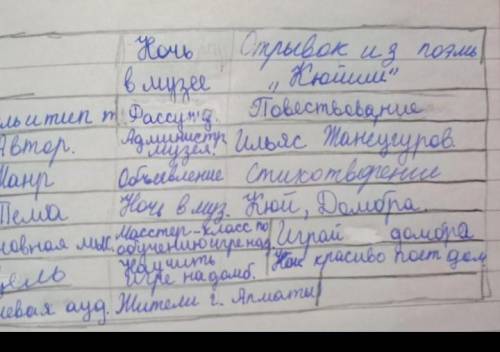 Ночь Отрывок из поэмы
в музее „Кюйши"
ль и тип т Рассужд. Повествование
Автор. Администр. музея. Ильяс Жансугуров.
Жанр Объявление Стихотворение
Тема Ночь в муз. Кюй, Домбра.
новная мыс. Масстер-класс по обучению игре на д. Играй домбра
цель Научить игре на домб. Как красиво поёт дом
левая ауд. Жители г. Алматы